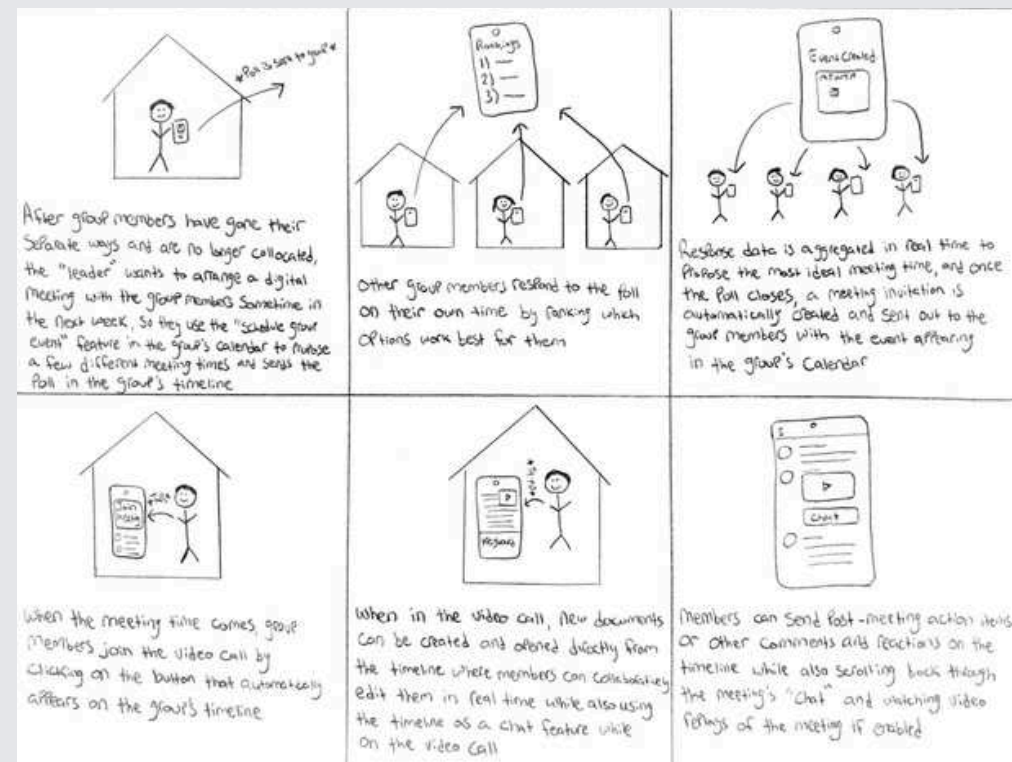 *Poll is sent to group*
After group members have gone their
separate ways and are no longer collocated,
the "leader" wants to arrange a digital
meeting with the group members sometime in
the next week, so they use the "schedule group
event" feature in the group's calendar to propose
a few different meeting times and sends the
Poll in the group's timeline
Rankings
1)
2)
3)
Other group members respond to the poll
on their own time by ranking which
options work best for them
Event Created
Response data is aggregated in real time to
propose the most ideal meeting time, and once
the Poll closes, a meeting invitation is
automatically created and sent out to the
group members with the event appearing
in the group's calendar
Join
When the meeting time comes, group
members join the video call by
clicking on the button that automatically
appears on the group's timeline
When in the video call, new documents
can be created and opened directly from
the timeline where members can collaboratively
edit them in real time while also using
the timeline as a chat feature while
on the video call
Chat
Members can send Post-meeting action items
or other comments and reactions on the
timeline while also scrolling back through
the meeting's "Chat" and watching video
replays of the meeting if enabled